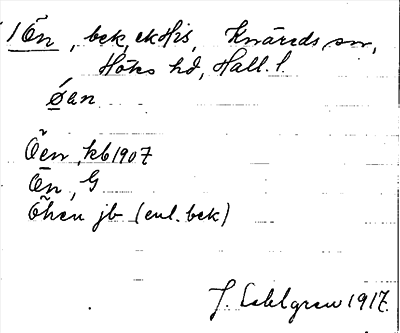 1 Ön, bek, ek His, Knäreds sn,
Höks hd, Hall. l.
Øan
Öen, kb 1907
Ön, G
Öhen jb (enl. bek)
J. Sahlgren 1917.